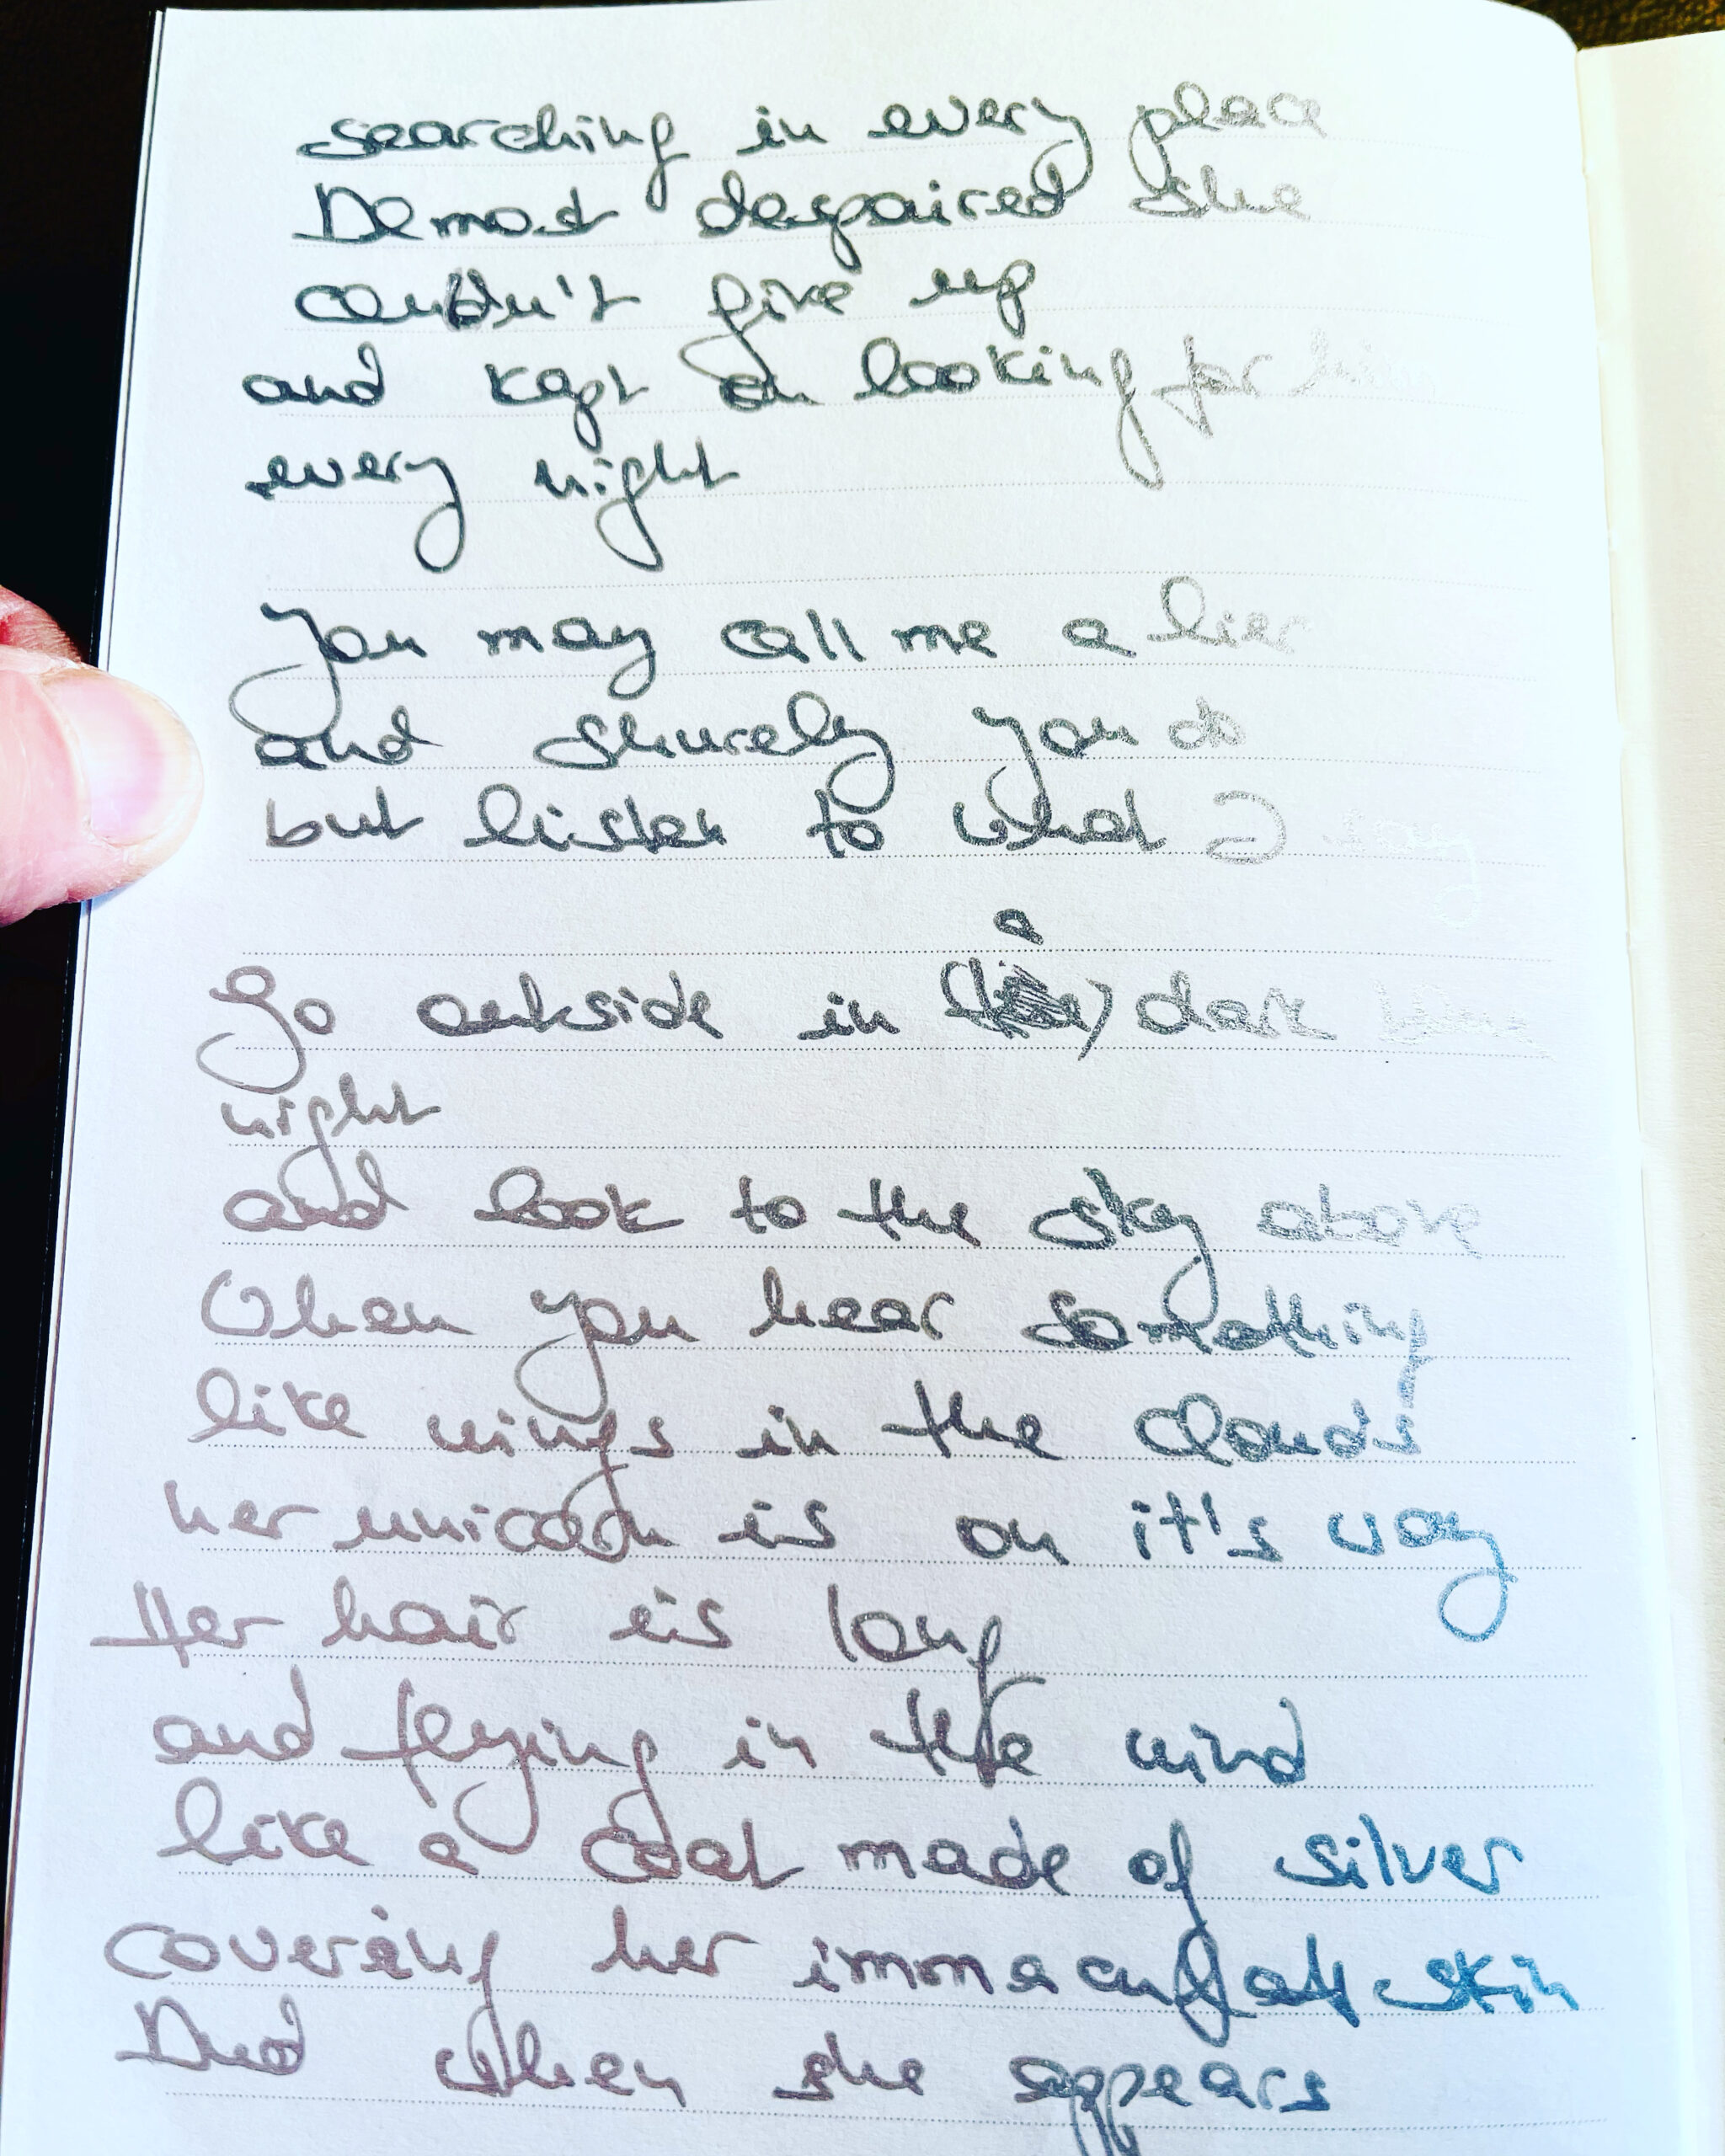 searching in every place
Almost despaired she
couldn't give up
and kept on looking for him
every night
You may call me a lier
and shurely you do
but listen to what I say
a
Go outside in dark blue
night
and look to the sky above
When you hear something
like wings in the clouds
her unicorn is on it's way
Her hair is long
and flying in the wind
like a coat made of silver
covering her immaculate skin
And when she appears